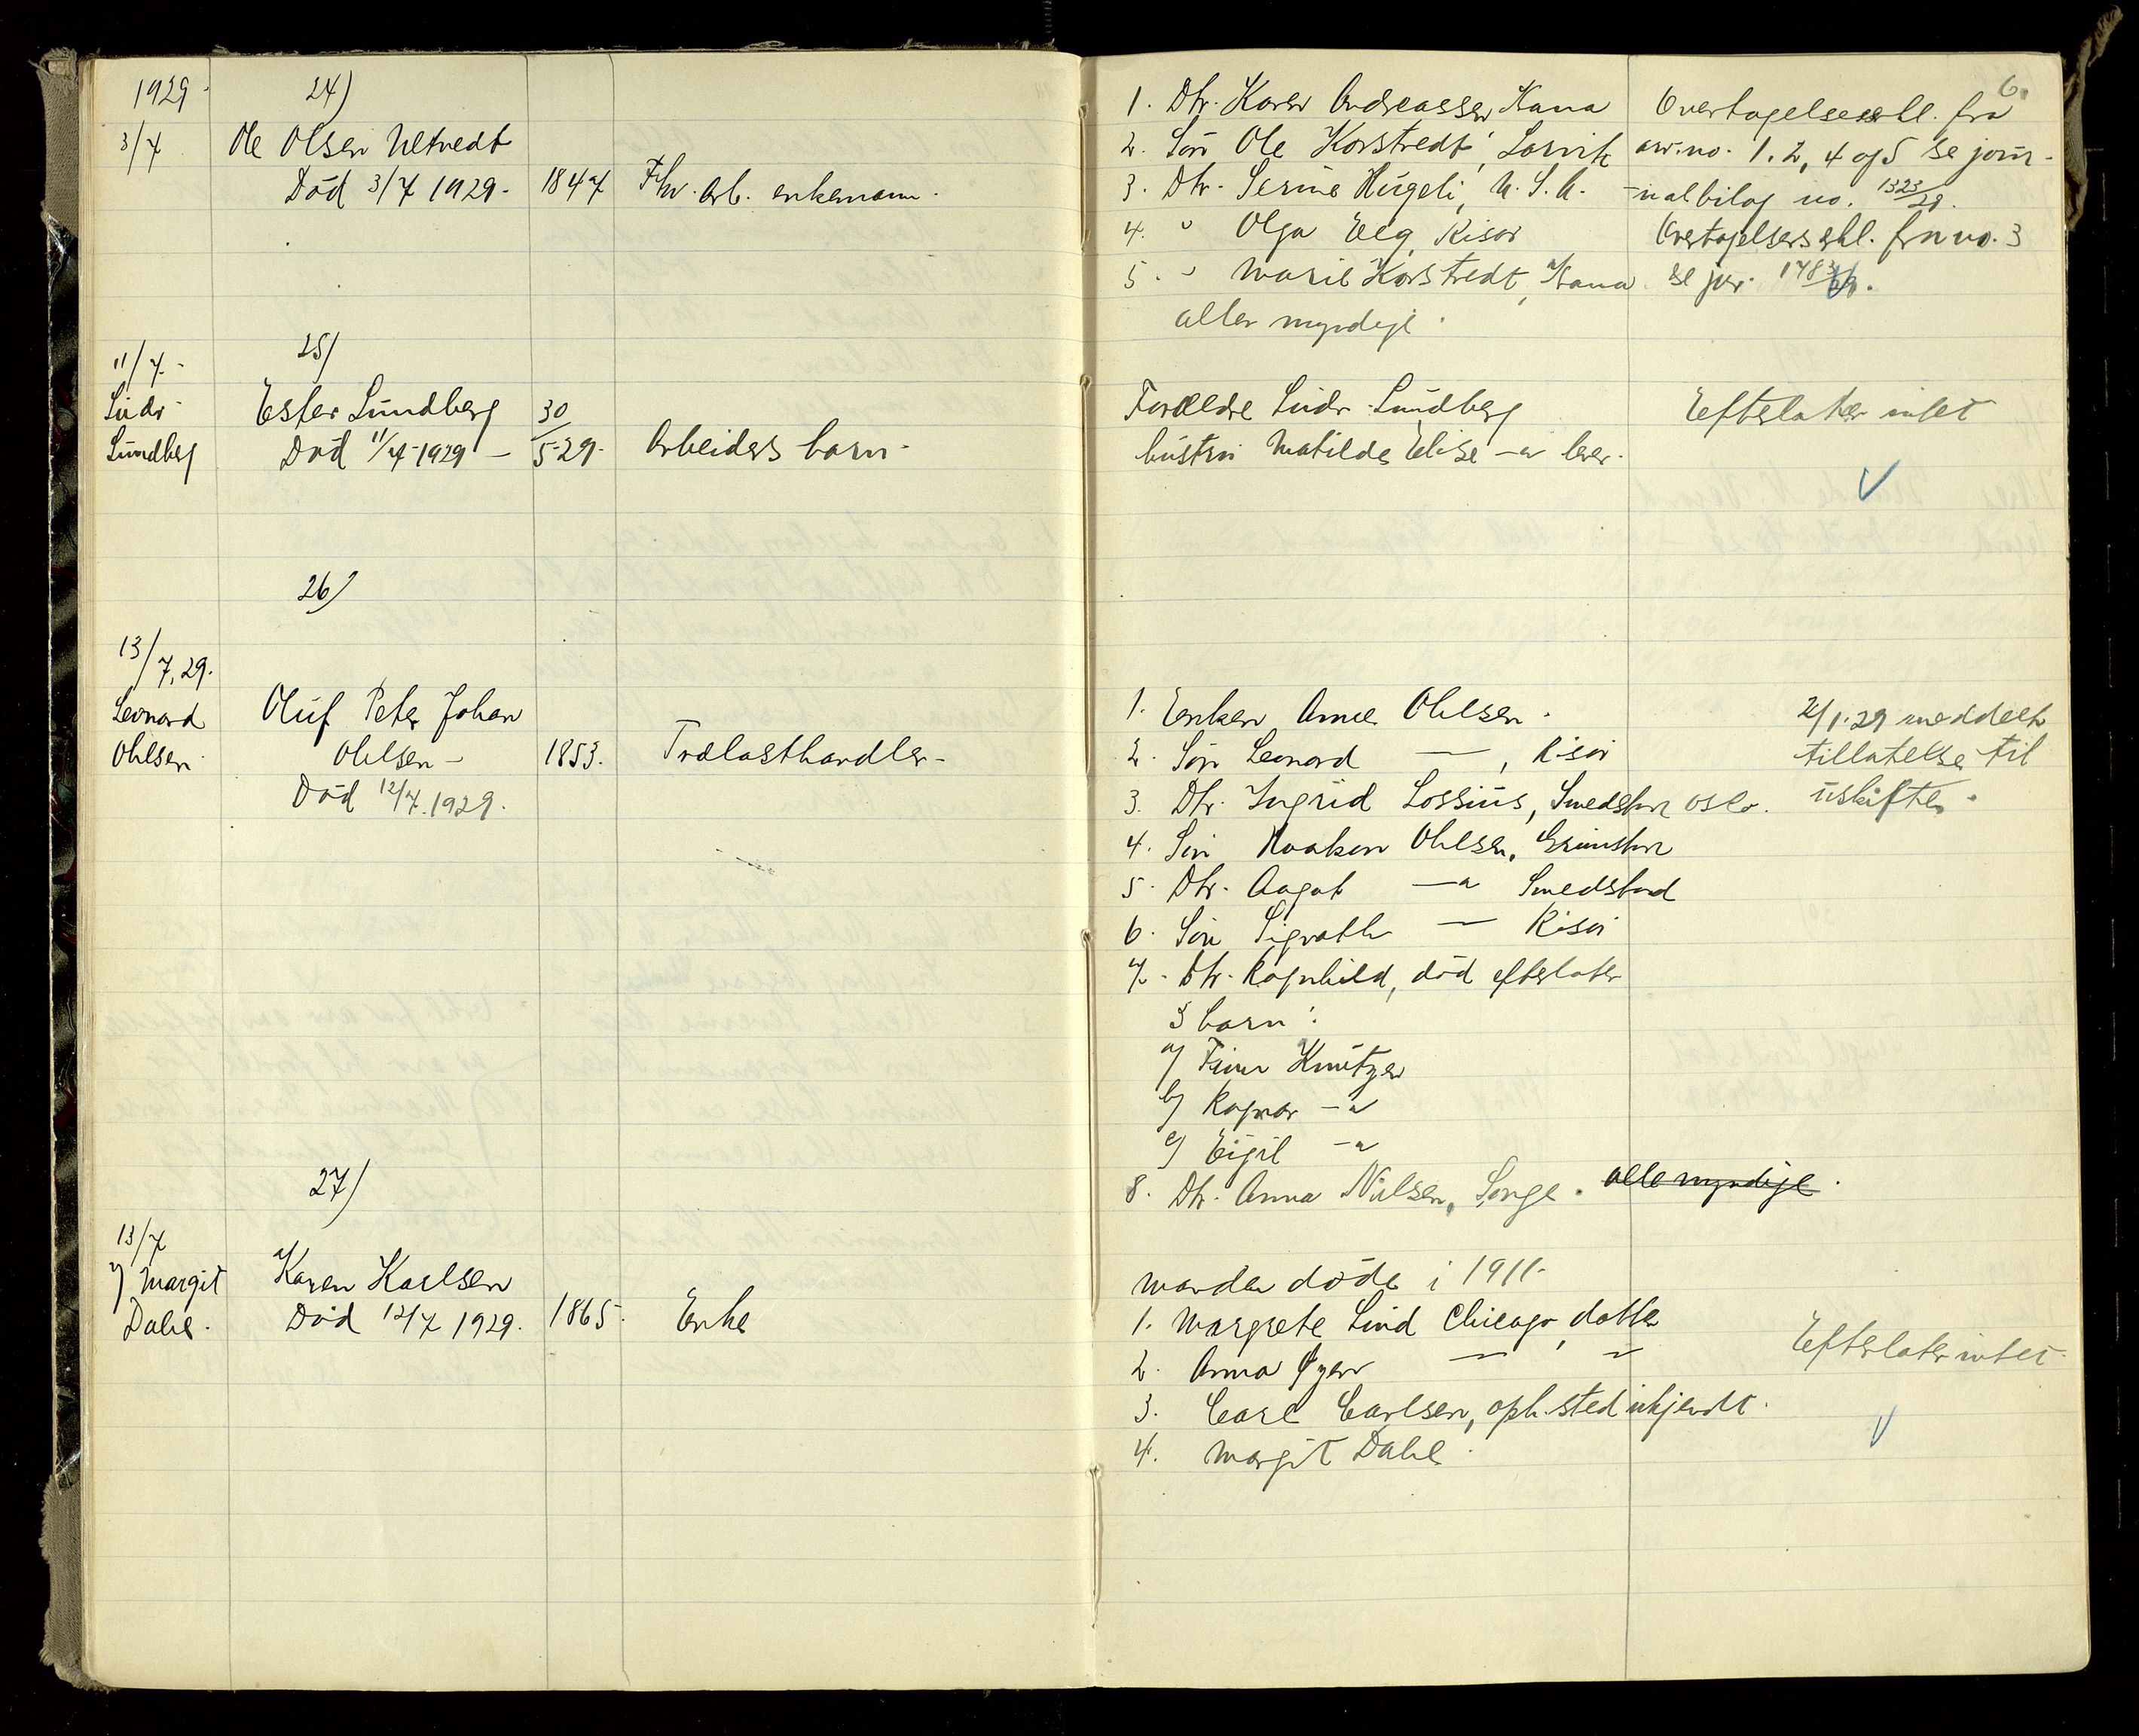 1929
24)
3/7 Ole Olsen Ultvedt
Død 3/7 1929 - 1847 Fhv. arb. enkemann.
1. Dtr. Karen Andreassen, Kana
2. Søn Ole Korstvedt, Larvik
3. Dtr. Serine Hügeli, U.S.A.
4. " Olga Eeg, Risør
5. " Marie Korstvedt, Kana
alle myndige.
6.
Overtagelseserkl. fra
arv. no. 1, 2, 4 og 5 se jour-
nalbilag no. 1323/29.
Overtagelseserkl. fra no. 3
se jnr.
25)
11/7 -
Sidr
Lundberg
Ester Lundberg
Død 11/7 1929 -
30/5-29.
Arbeiders barn -
Forældre Sidr. Lundberg
hustru Matilde Elise -"- lever.
Efterlater intet
26)
13/7, 29.
Leonard
Ohlsen
Oluf Peter Johan
Ohlsen -
Død 12/7. 1929.
1853.
Trælasthandler -
1. Enken Amee Ohlsen.
2. Søn Leonard — , Risør
3. Dtr. Ingrid Lossius, Smedstad Oslo.
4. Søn Haakon Ohlsen, Grimstad
5. Dtr. Aagot —"— Smedstad
6. Søn Sigvath — Risør
7. Dtr. Ragnhild, død efterlater
3 barn:
a) Finn Knutzen
b) Ragnar -"-
c) Eigil -"-
8. Dtr. Anna Nilsen, Songe. alle myndige.
2/1.29 meddelt
tillatelse til
uskifte.
27)
13/7
v/ Margit
Dahl.
Karen Karlsen
Død 12/7 1929.
1865.
Enke
Manden døde i 1911.
1. Margrete Lind Chicago, datter
2. Anna Øyen — "
3. Carl Carlsen, oph.sted ukjendt.
4. Margit Dahl.
Efterlater intet.